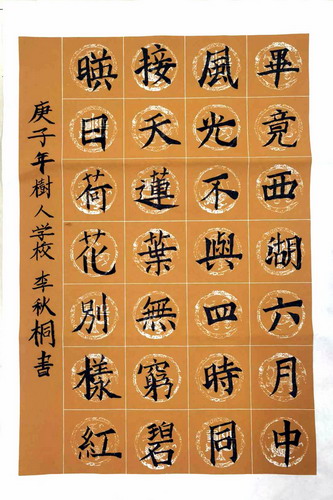 畢竟西湖六月中
風光不與四時同
接天蓮葉無窮碧
暎日荷花别樣紅
庚子年樹人学校李秋桐書